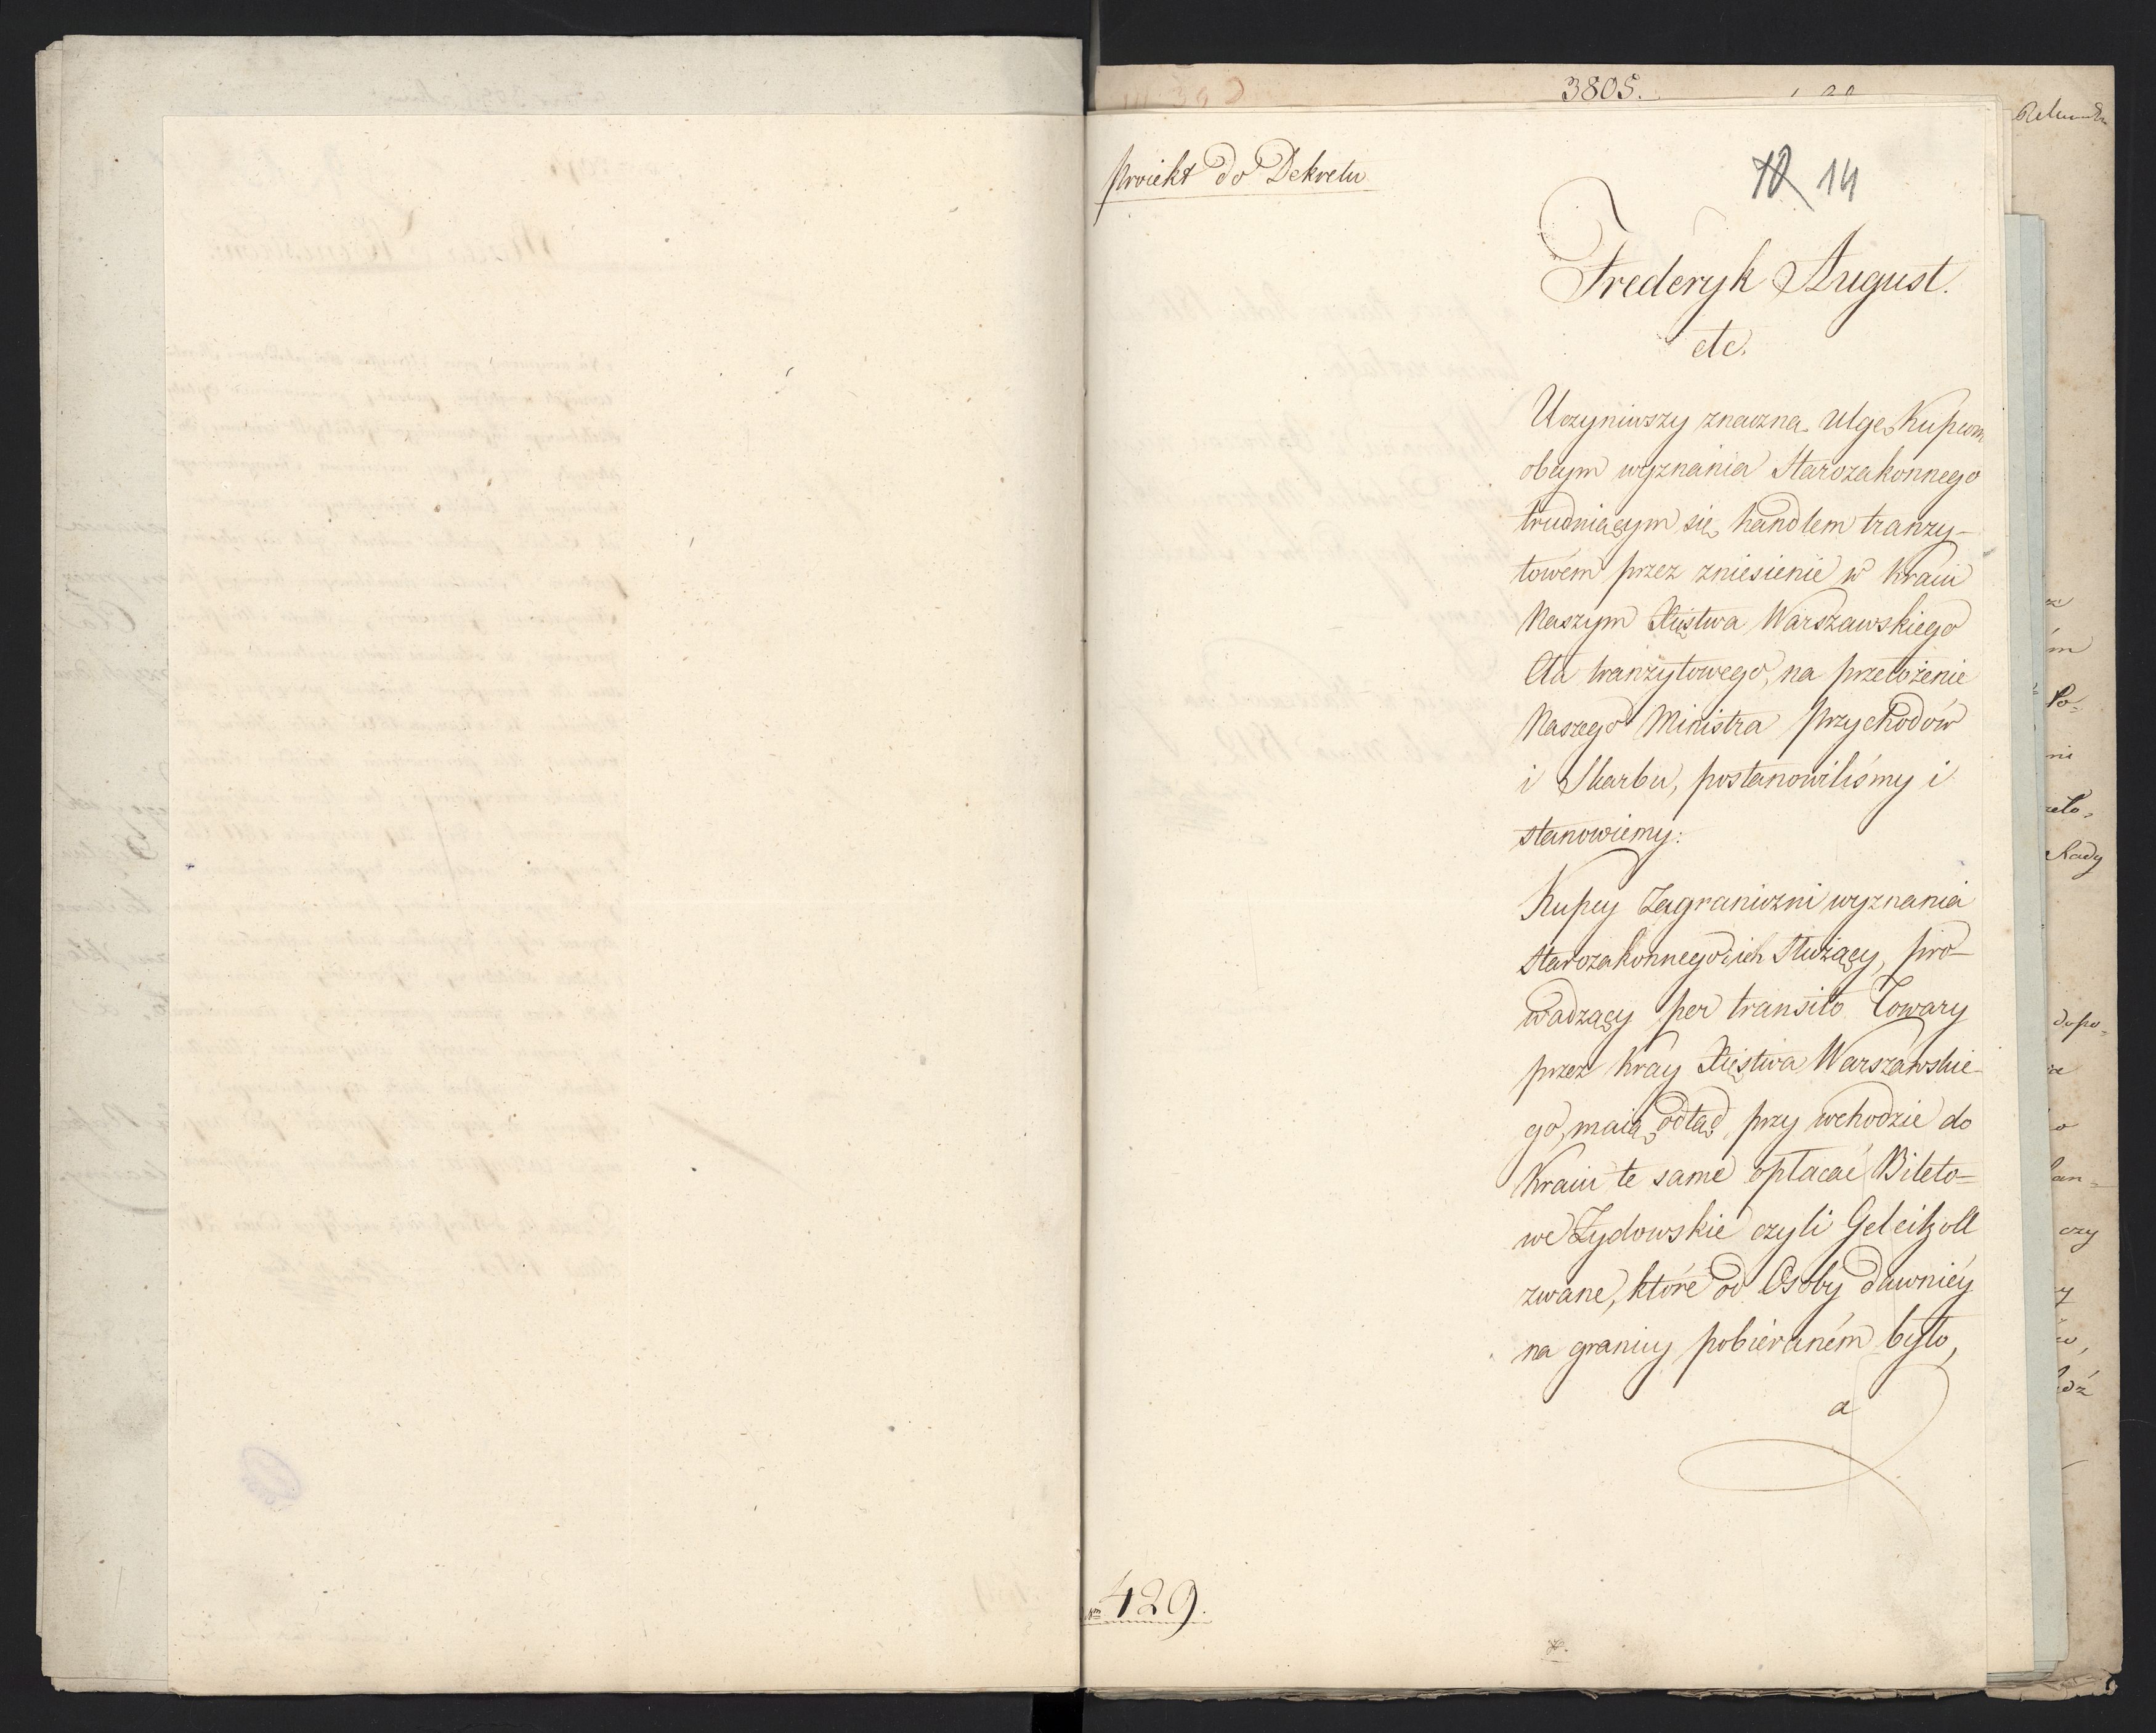 3805.
Proiekt do Dekretu
10 14
Frederyk August.
etc.
Uczyniwszy znaczną ulgę Kupcom
obcym wyznania Starozakonnego
trudniącym się handlem tranzy-
towém przez zniesienie w kraiu
Naszym Xięstwa Warszawskiego
Cła tranzytowego, na przełożenie
Naszego Ministra Przychodów
i Skarbu, postanowiliśmy i
stanowiemy:
Kupcy Zagraniczni wyznania
Starozakonnego i ich Służący, pro-
wadzący per transito Towary
przez kray Xięstwa Warszawskie-
go, maią odtąd przy wchodzie do
Kraiu te same opłacać Bileto=
we Żydowskie czyli Geleitzoll
zwane, które od Osoby dawniéy
na granicy pobieraném było,
a
429.
Po=
nie
Rady
dopo=
czy